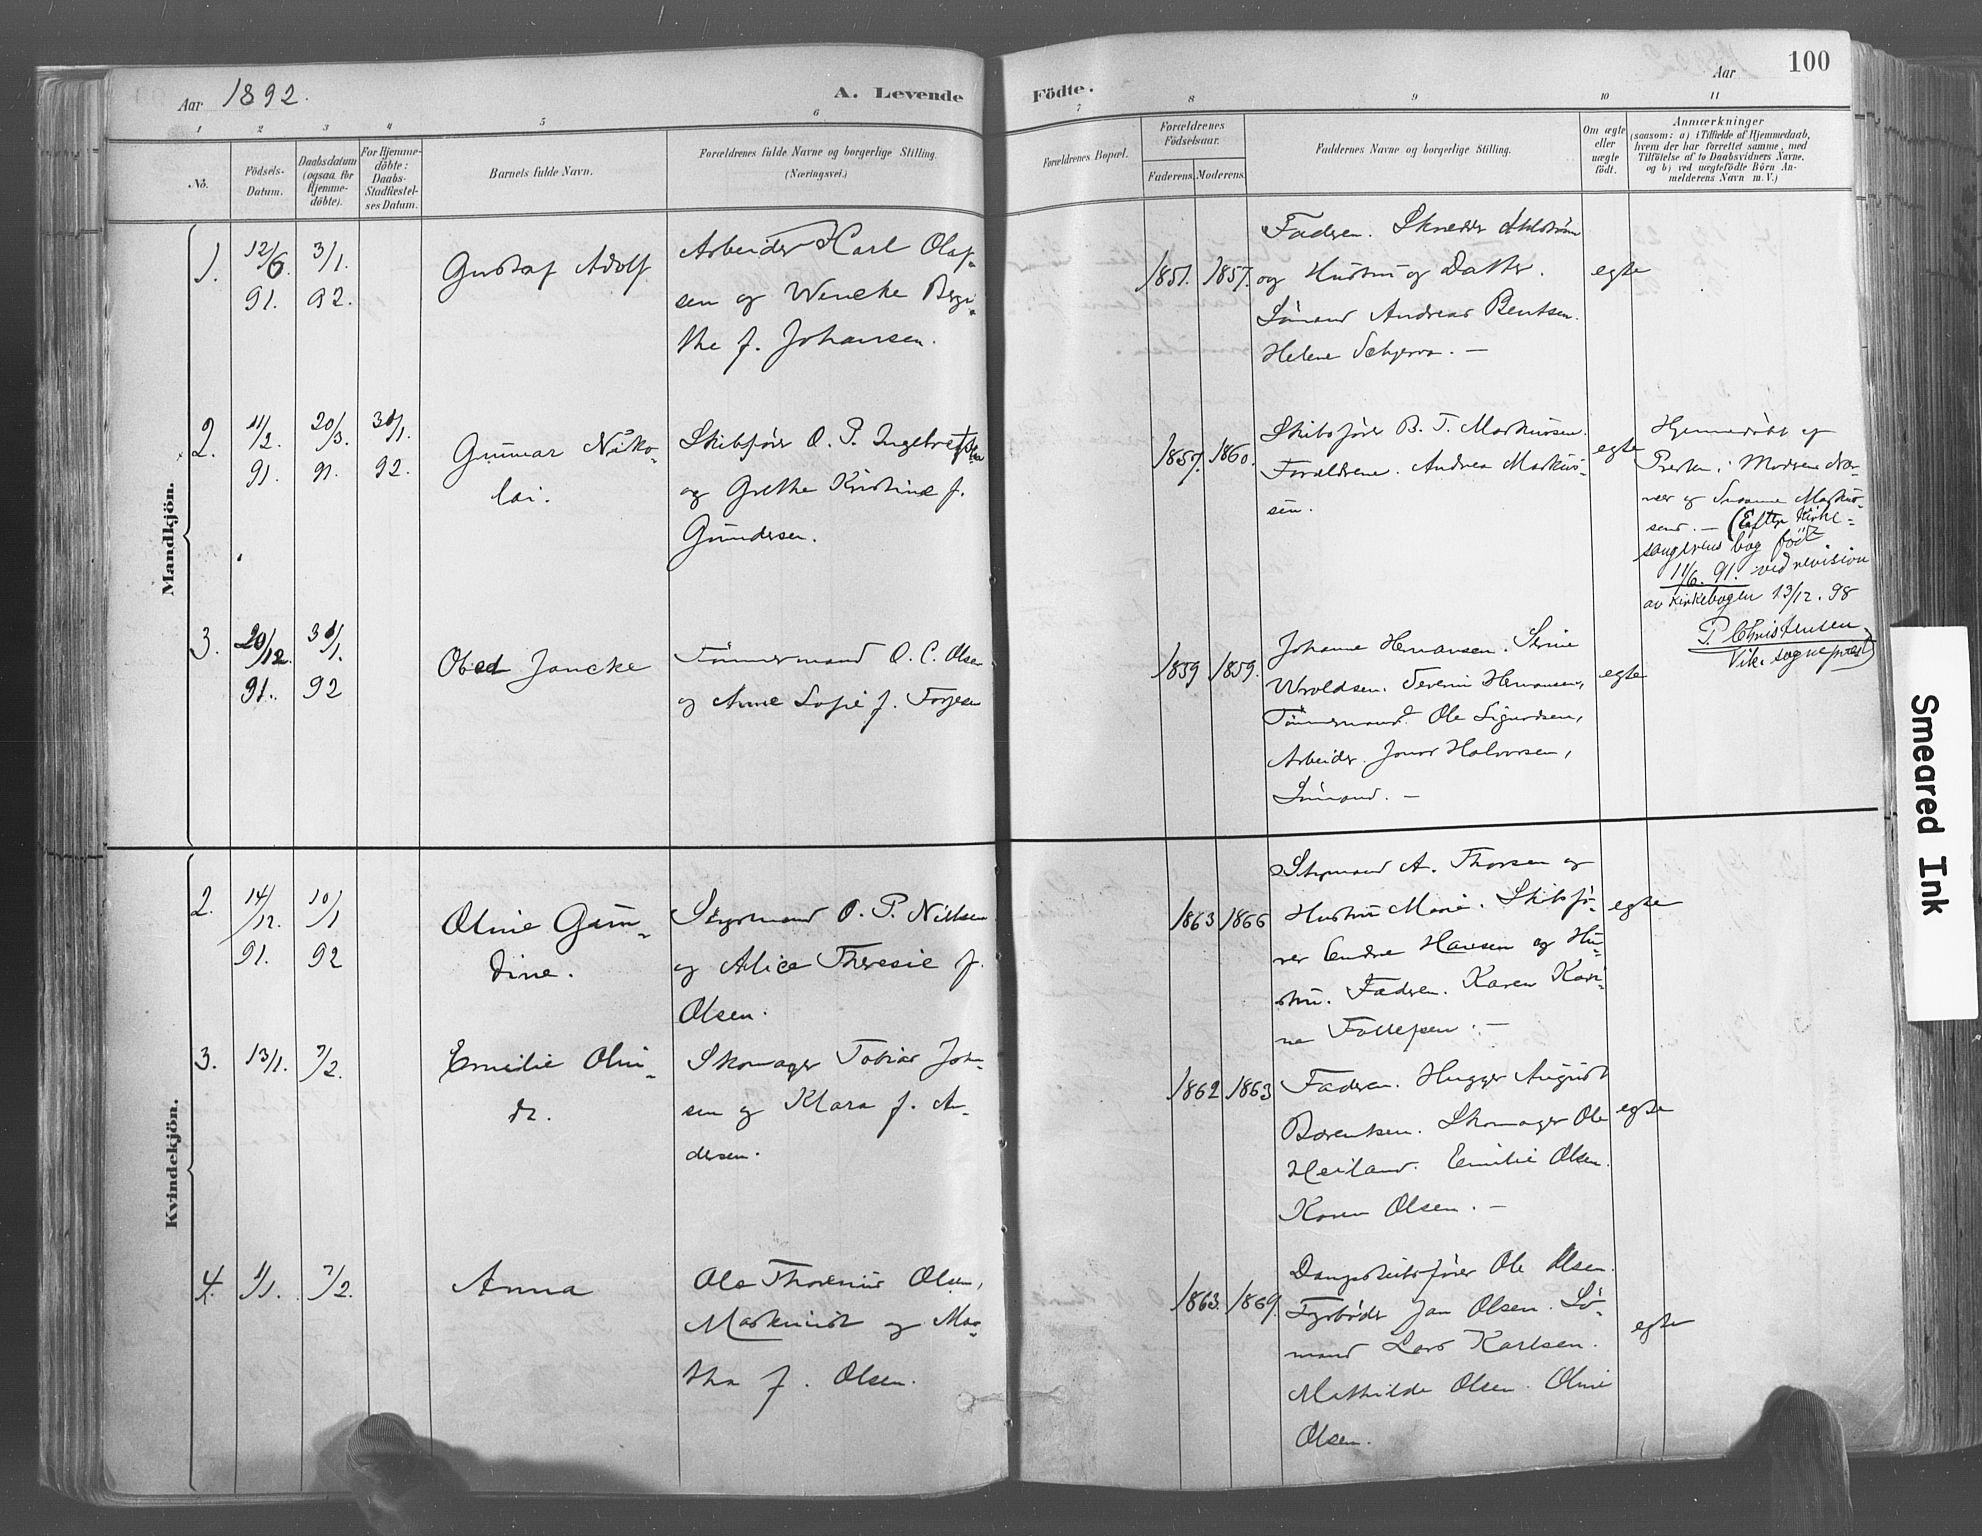 Aar 1892.
A. Levende Födte.
Aar
100
1 2 3 4 5 6 7 8 9 10 11
No.
Födsels-
Datum.
Daabsdatum
(ogsaa for
Hjemme-
döbte).
For Hjemme-
döbte:
Daabs-
Stadfæstel-
ses Datum.
Barnets fulde Navn.
Forældrenes fulde Navne og borgerlige Stilling.
(Næringsvei.)
Forældrenes Bopæl.
Forældrenes
Födselsaar.
Faderens. Moderens.
Faddernes Navne og borgerlige Stilling.
Om ægte
eller
uægte
födt.
Anmærkninger
(saasom: a) i Tilfælde af Hjemmedaab,
hvem der har forrettet samme, med
Tilföielse af to Daabsvidners Navne,
og b) ved uægtefödte Börn An-
melderens Navn m. V.)
Mandkjön.
1.
12/6.
91.
3/1.
92.
Gustaf Adolf
Arbeider Karl Olaf-
sen og Wencke Ber-
the f. Johansen.
1851. 1857.
Faderen. Skrædder
og Hustru og Datter.
Sömand Andreas Bentsen.
Helene
egte
2.
11/2.
91.
20/3.
91.
31/1.
92.
Gunnar Niko-
lai.
Skibsförer O. P. Ingebretsen
og Grethe Kristine f.
Gundersen.
1857. 1860.
Skibsförer B. T. Markussen.
Forældrene. Andrea Markus-
sen.
egte
Hjemmedöbt af
Presten.
og Susanne Markus-
sen. — (Efter Kirke-
sangerens bog född
11/6. 91. ved revision
av kirkebogen 13/12. 98
P Christensen
Vik. sogneprest)
3.
20/12.
91.
31/1.
92
Obed Jancke
Tömmermand O. C. Olsen
og Anne Sofie f. Torjesen
1859 1859.
Johanne Hermansen.
Severin Hermansen,
Tömmermand. Ole Sigurdsen,
Arbeider. Jonas Halvorsen,
Sömand. —
egte
Kvindekjön.
2.
14/12.
91.
10/1
92
Oline Gun-
dine.
Styrmand O. P. Nielsen
og Alice Theresie f.
Olsen.
1863 1866
Styrmand A. Thorsen og
Hustru Marie. Skibsfö-
rer Endre Hansen og Hu-
stru. Faderen. Karen Kari-
ne —
egte
3.
13/1.
7/2.
Emilie Olin-
de.
Skomager Tobias Jon-
sen og Klara f. An-
dersen.
1862 1863
Faderen. Hugger August
Berentsen. Skomager Ole
Heiland. Emilie Olsen.
Karen Olsen. —
egte
4.
1/1.
7/2.
Anna
Ole Thorenius Olsen,
Maskinist og Mar-
tha f. Olsen.
1863. 1869.
Dampskibsförer Ole Olsen.
Fyrböder Jan Olsen. Sö-
mand Lars Karlsen.
Mathilde Olsen. Oline
Olsen.
egte
Smeared Ink